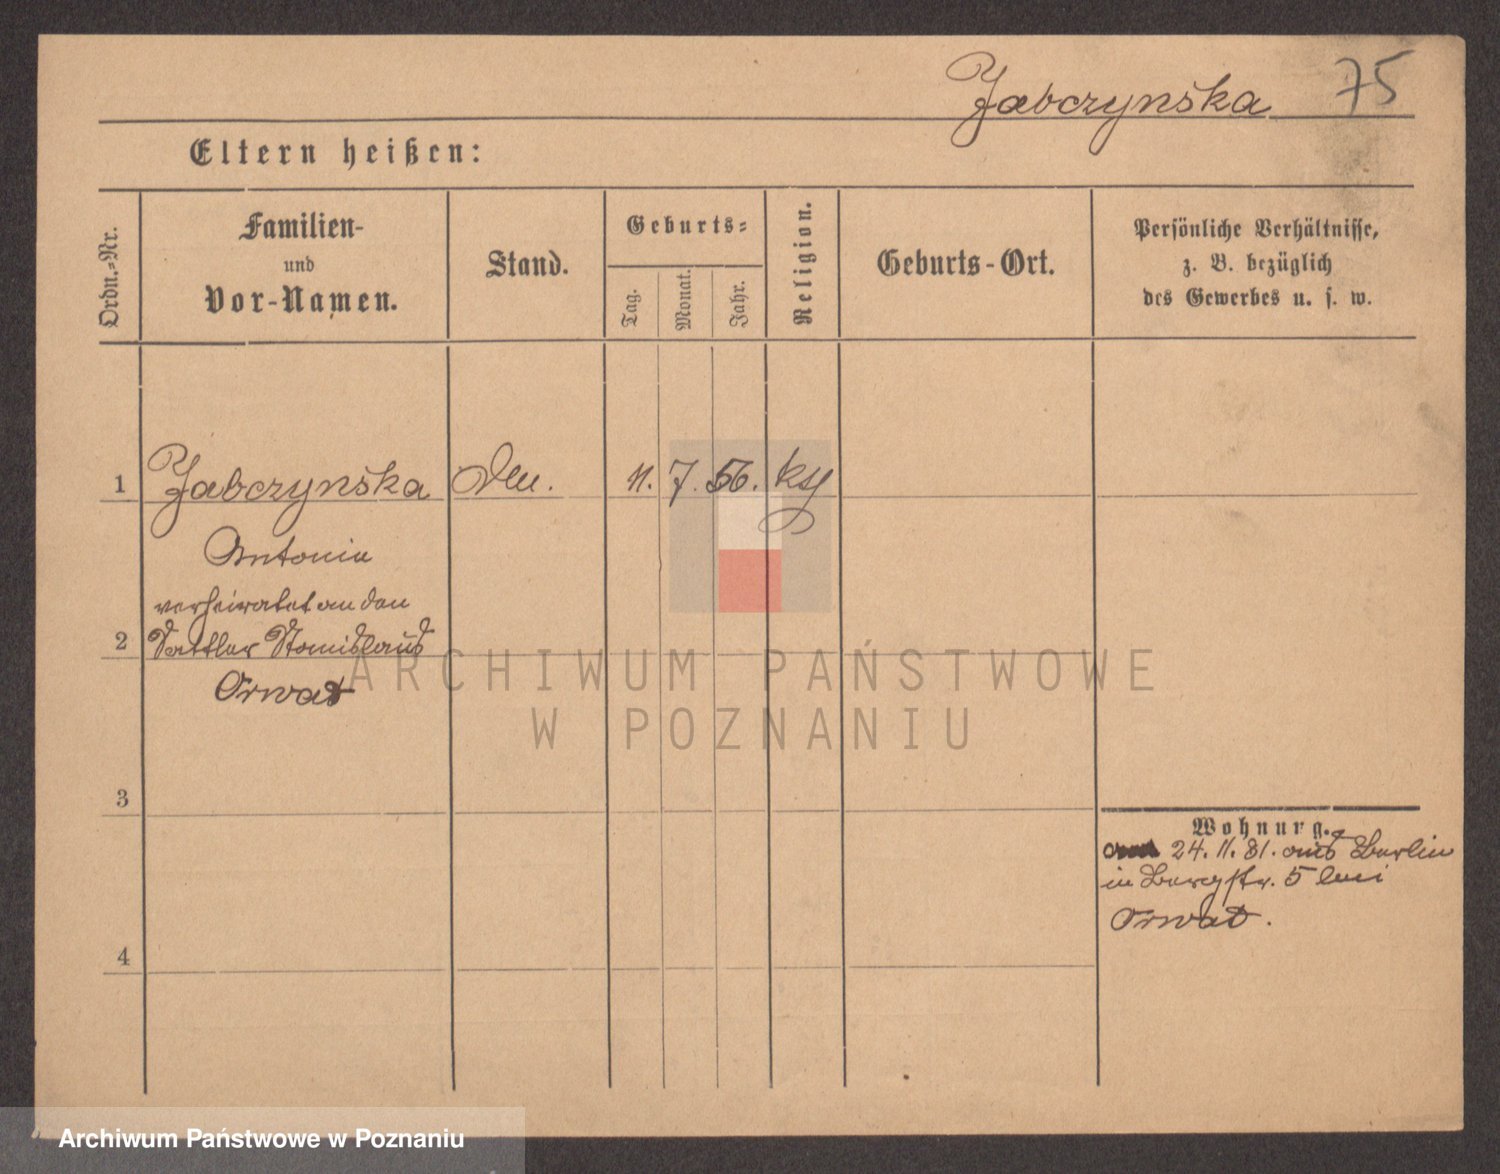 Jabczynska 75
Eltern heißen:
Ordn.-Nr.
Familien-
und
Vor-Namen.
Stand.
Geburts-
Tag.
Monat.
Jahr.
Religion.
Geburts-Ort.
Persönliche Verhältnisse,
z. B. bezüglich
des Gewerbes u. s. w.
1 Jabczynska 11. 7. 56.
Antonie
verheiratet an den
2 Sattler Stanislaus
Orwat
ARCHIWUM PAŃSTWOWE
W POZNANIU
3
Wohnung.
24. 11. 81. aus Berlin
in Bergstr. 5 bei
Orwat.
4
Archiwum Państwowe w Poznaniu